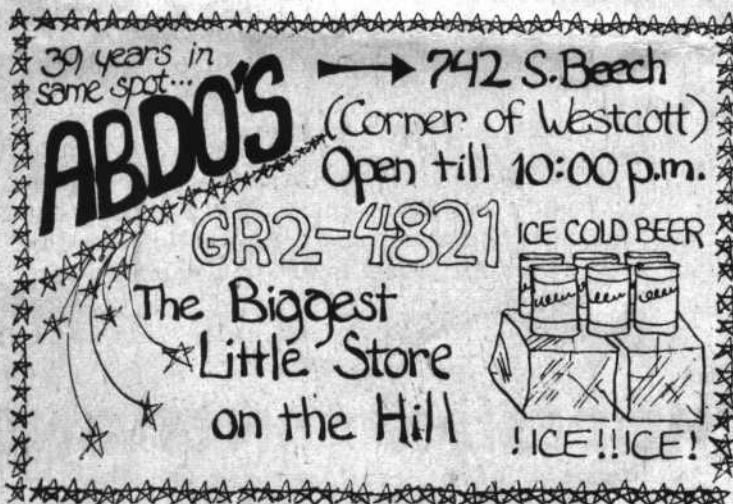 39 years in
same spot...
ABDO'S
742 S. Beech
(Corner of Westcott)
Open till 10:00 p.m.
GR2-4821
The Biggest
Little Store
on the Hill
ICE COLD BEER
!ICE!!ICE!